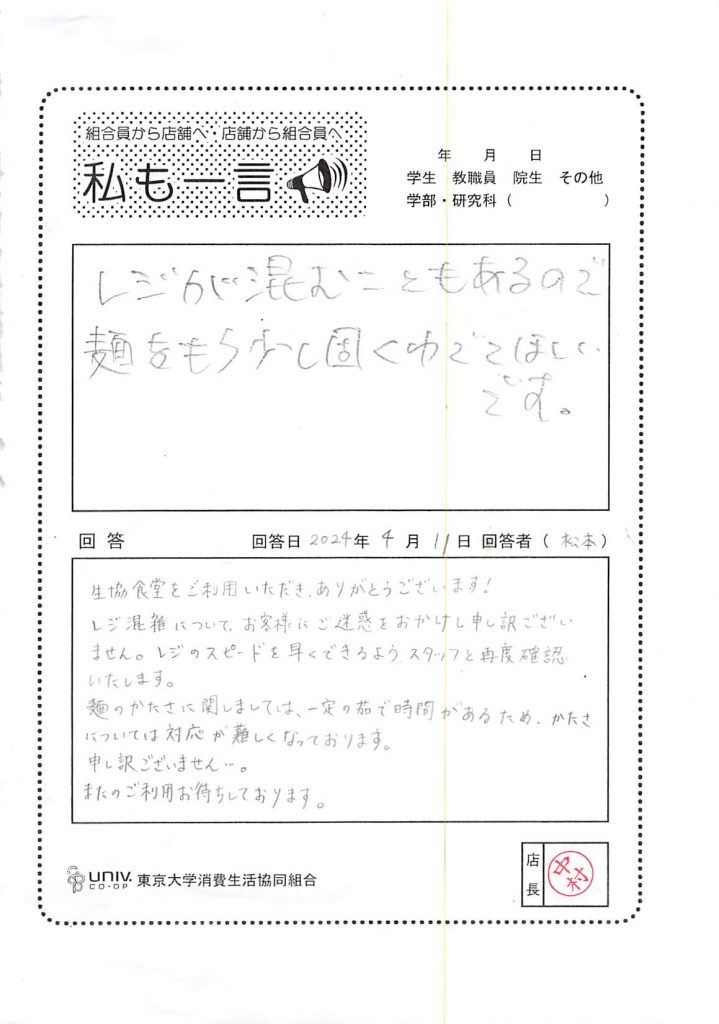 組合員から店舗へ・店舗から組合員へ
私も一言
年 月 日
学生 教職員 院生 その他
学部・研究科（ ）
レジが混むこともあるので
麺をもう少し固くゆでてほしい
です。
回答 回答日2024年4月11日 回答者（松本）
生協食堂をご利用いただき、ありがとうございます！
レジ混雑について、お客様にご迷惑をおかけし申し訳ござい
ません。レジのスピードを早くできるよう、スタッフと再度確認
いたします。
麺のかたさに関しましては、一定の茹で時間があるため、かたさ
については対応が難しくなっております。
申し訳ございません…。
またのご利用お待ちしております。
UNIV. CO-OP 東京大学消費生活協同組合
店長
中村